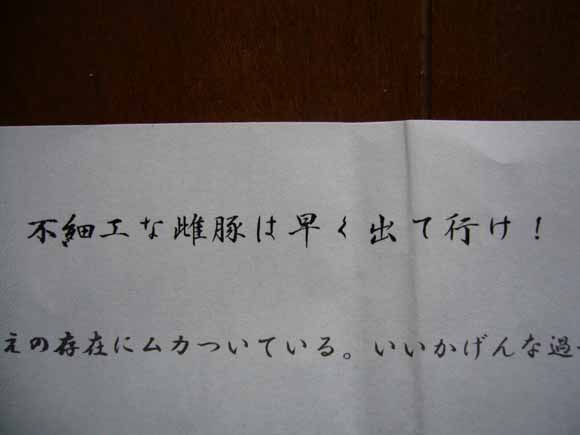 不細工な雌豚は早く出て行け！
えの存在にムカついている。いいかげんな過